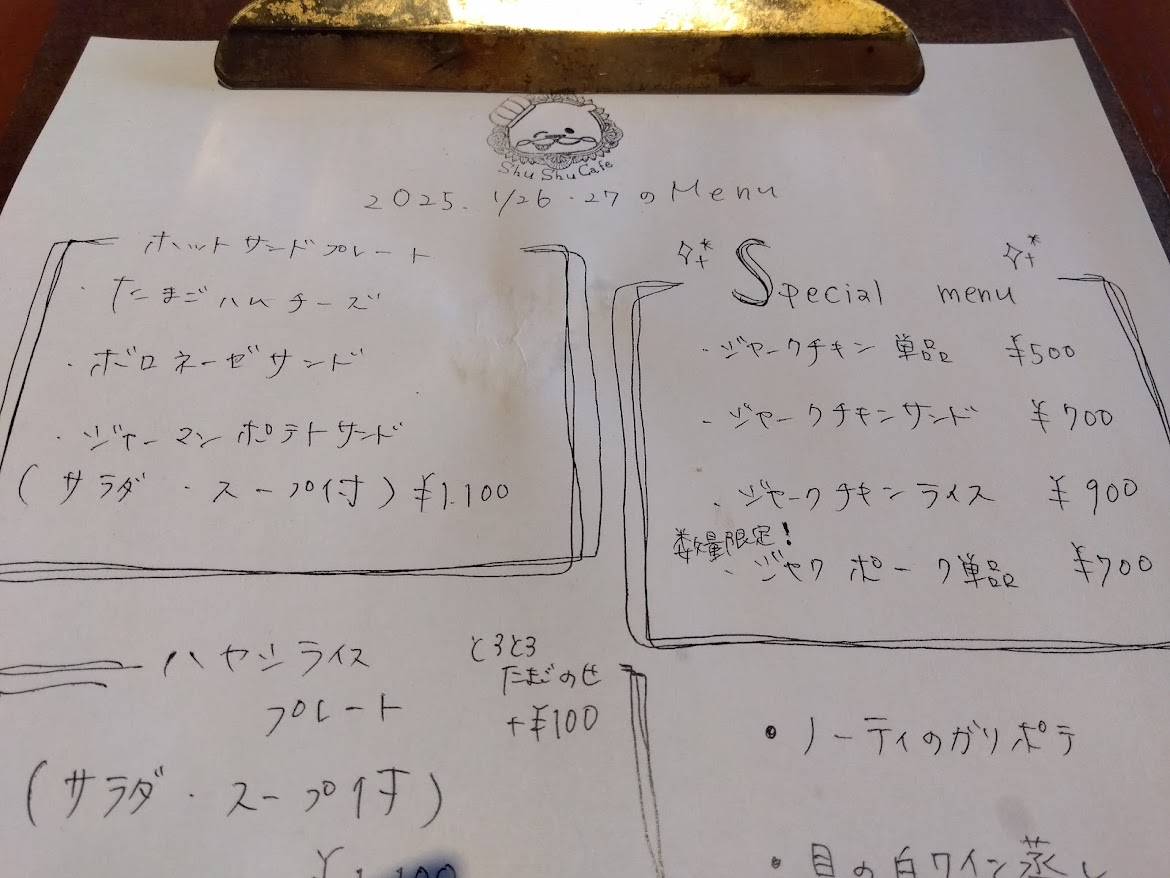 Shu Shu Cafe
2025. 1/26・27 の Menu
ホットサンドプレート
・たまごハムチーズ
・ボロネーゼサンド
・ジャーマンポテトサンド
(サラダ・スープ付) ¥1.100
Special menu
・ジャークチキン 単品 ¥500
・ジャークチキンサンド ¥700
・ジャークチキンライス ¥900
数量限定!
・ジャクポーク単品 ¥700
ハヤシライス
プレート
とろとろ
たまごのせ
+¥100
(サラダ・スープ付)
¥1.100
・ノーティのガリポテ
・目の白ワイン蒸し